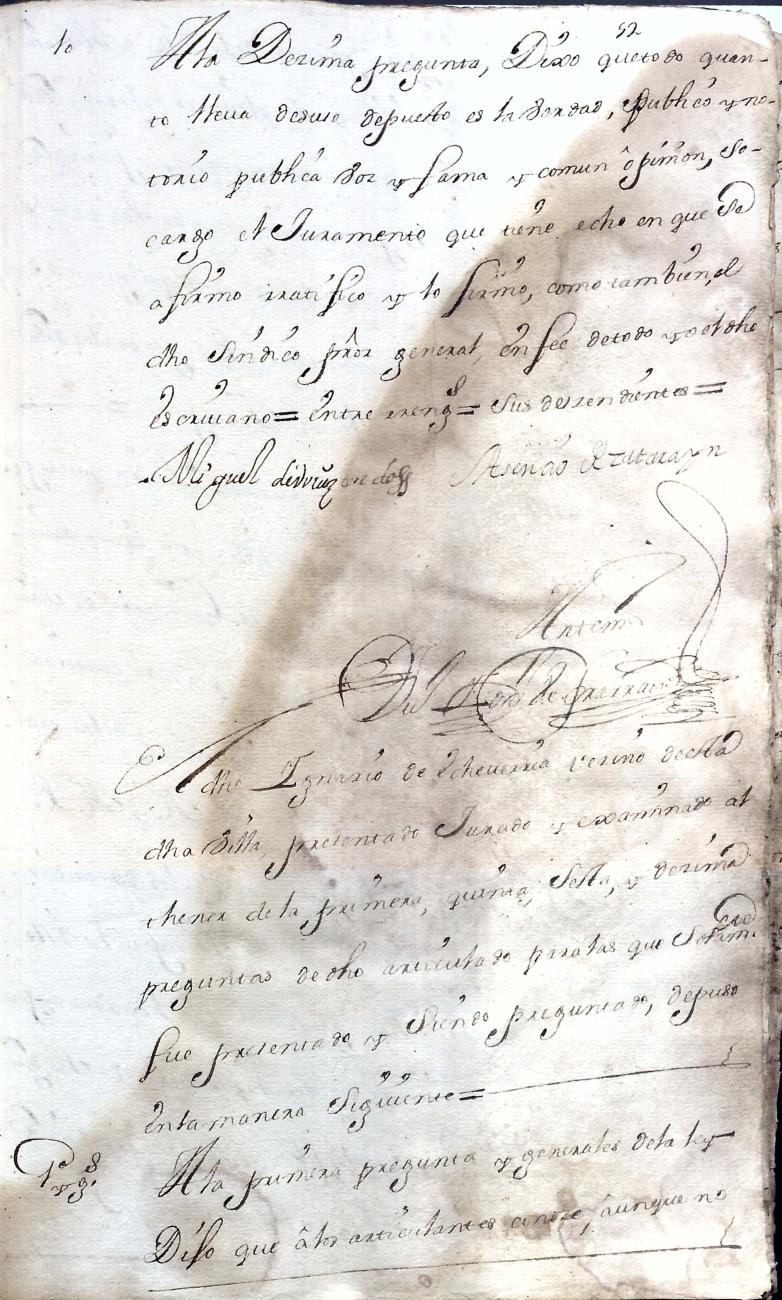 52
10 A la Dezima pregunta, Dixo q̃ue todo quan-
to lleva desuso depuesto es la Verdad, publico y no-
torio publica Voz y fama y comun opinion, so
cargo el Juramento que tiene echo en que se
afirmo ratifico y lo firmo, como tambien, el
dho Sindico prõr general, en fee de todo yo el dho
escrivano= entre rreng.s= sus deszendientes=
Miguel Asencio
Antemi
A dho Ignacio de Echeverria vezino desta
dha Villa, presentado Jurado y examinado al
thenor de la primera, quinta, Sesta, y dezima
preguntas de dho articulado para las que
fue presentado y Siendo preguntado, depuso
en la manera Siguiente=
1ª y g.s A la primera pregunta y generales de la ley
Dijo que â los articulantes conoze, âunque no